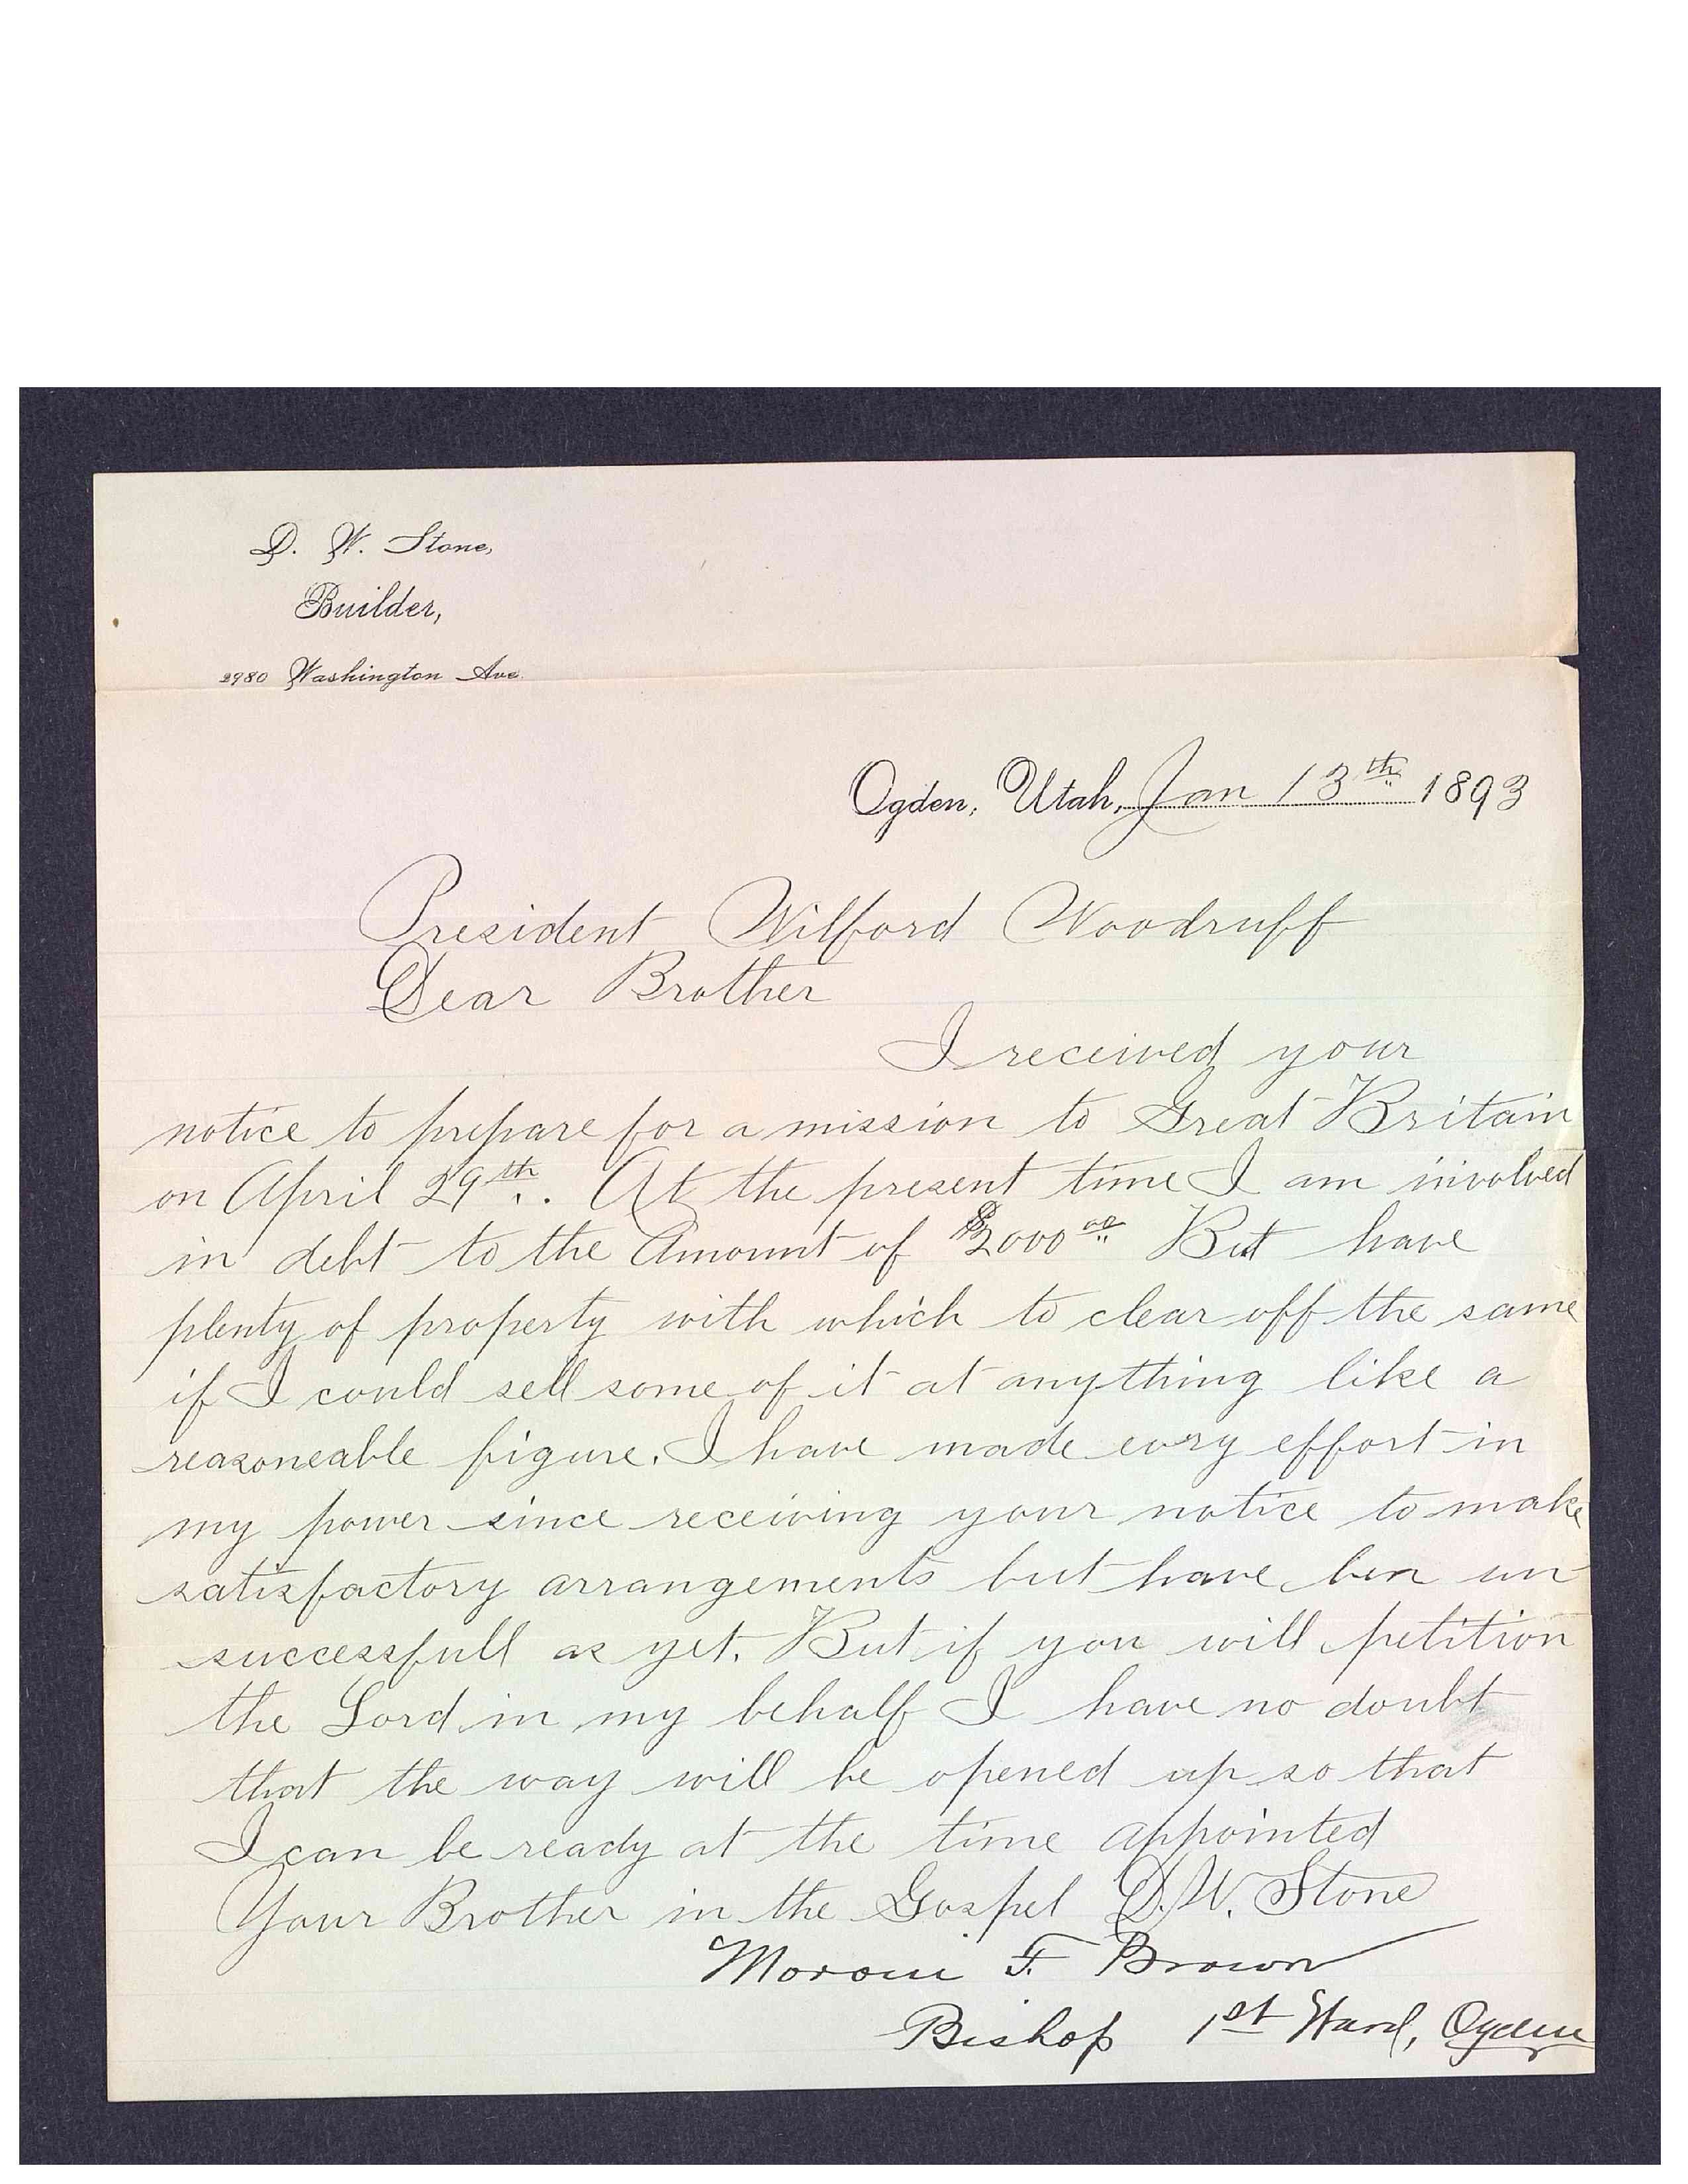 D. W. Stone,
Builder,
2980 Washington Ave.
Ogden, Utah, Jan 13th 1893
President Wilford Woodruff
Dear Brother
I received your
notice to prepare for a mission to Great Britain
on April 29th. At the present time I am involved
in debt to the Amount of $2000 00 But have
plenty of property with which to clear off the same
if I could sell some of it at anything like a
reasoneable figure. I have made every effort in
my power since receiving your notice to make
satisfactory arrangements but have ben un-
successfull as yet. But if you will petition
the Lord in my behalf I have no doubt
that the way will be opened up so that
I can be ready at the time appointed
Your Brother in the Gospel D. W. Stone
Moroni F. Brown
Bishop 1st Ward, Ogden